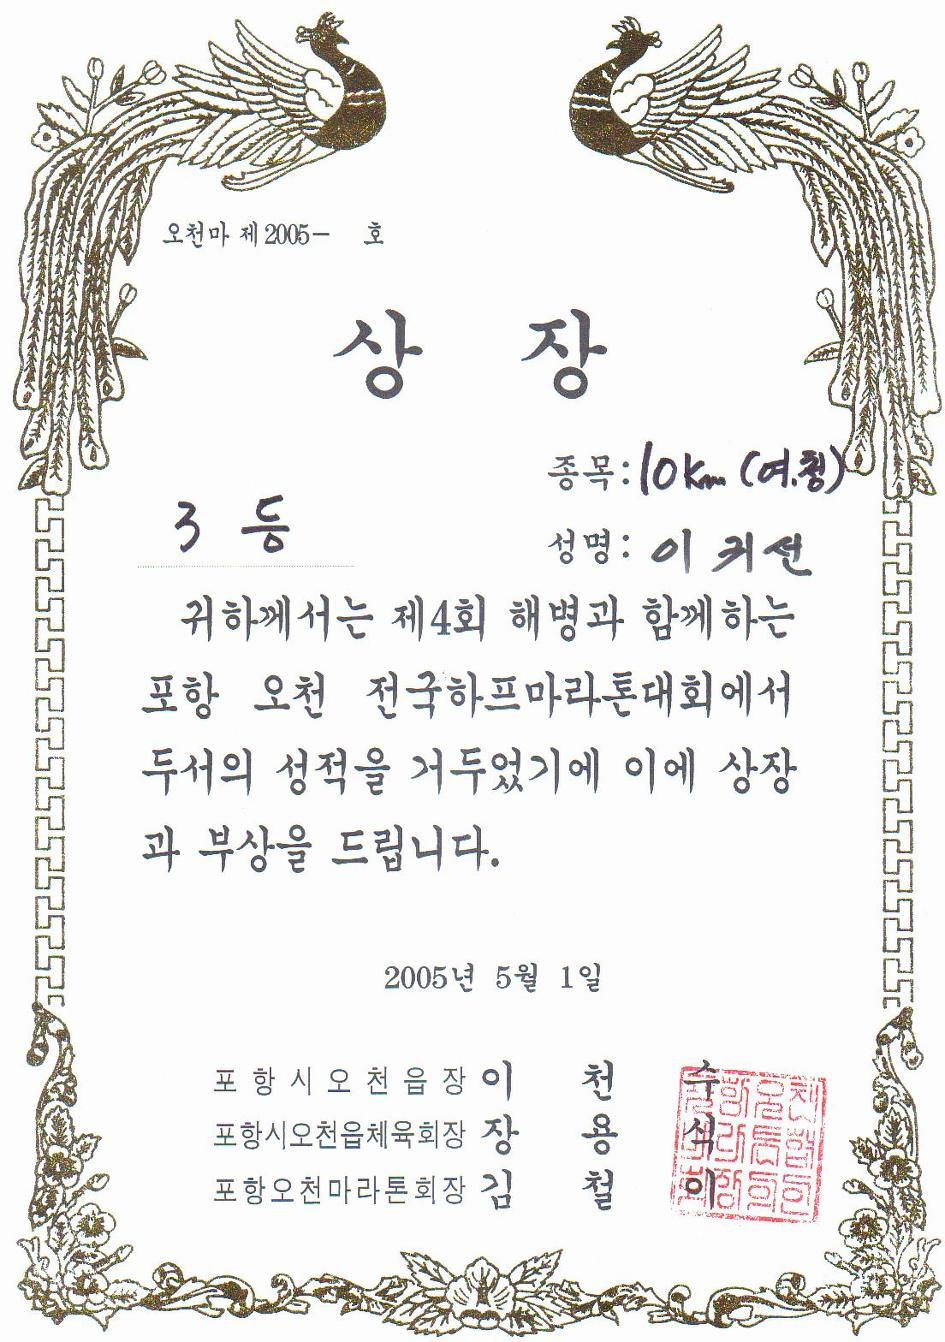 오천마 제2005- 호
상 장
종목: 10km (여.청)
3 등
성명: 이 귀선
귀하께서는 제4회 해병과 함께하는
포항 오천 전국하프마라톤대회에서
두서의 성적을 거두었기에 이에 상장
과 부상을 드립니다.
2005년 5월 1일
포항시오천읍장 이 천 수
포항시오천읍체육회장 장 용 석
포항오천마라톤회장 김 철 이